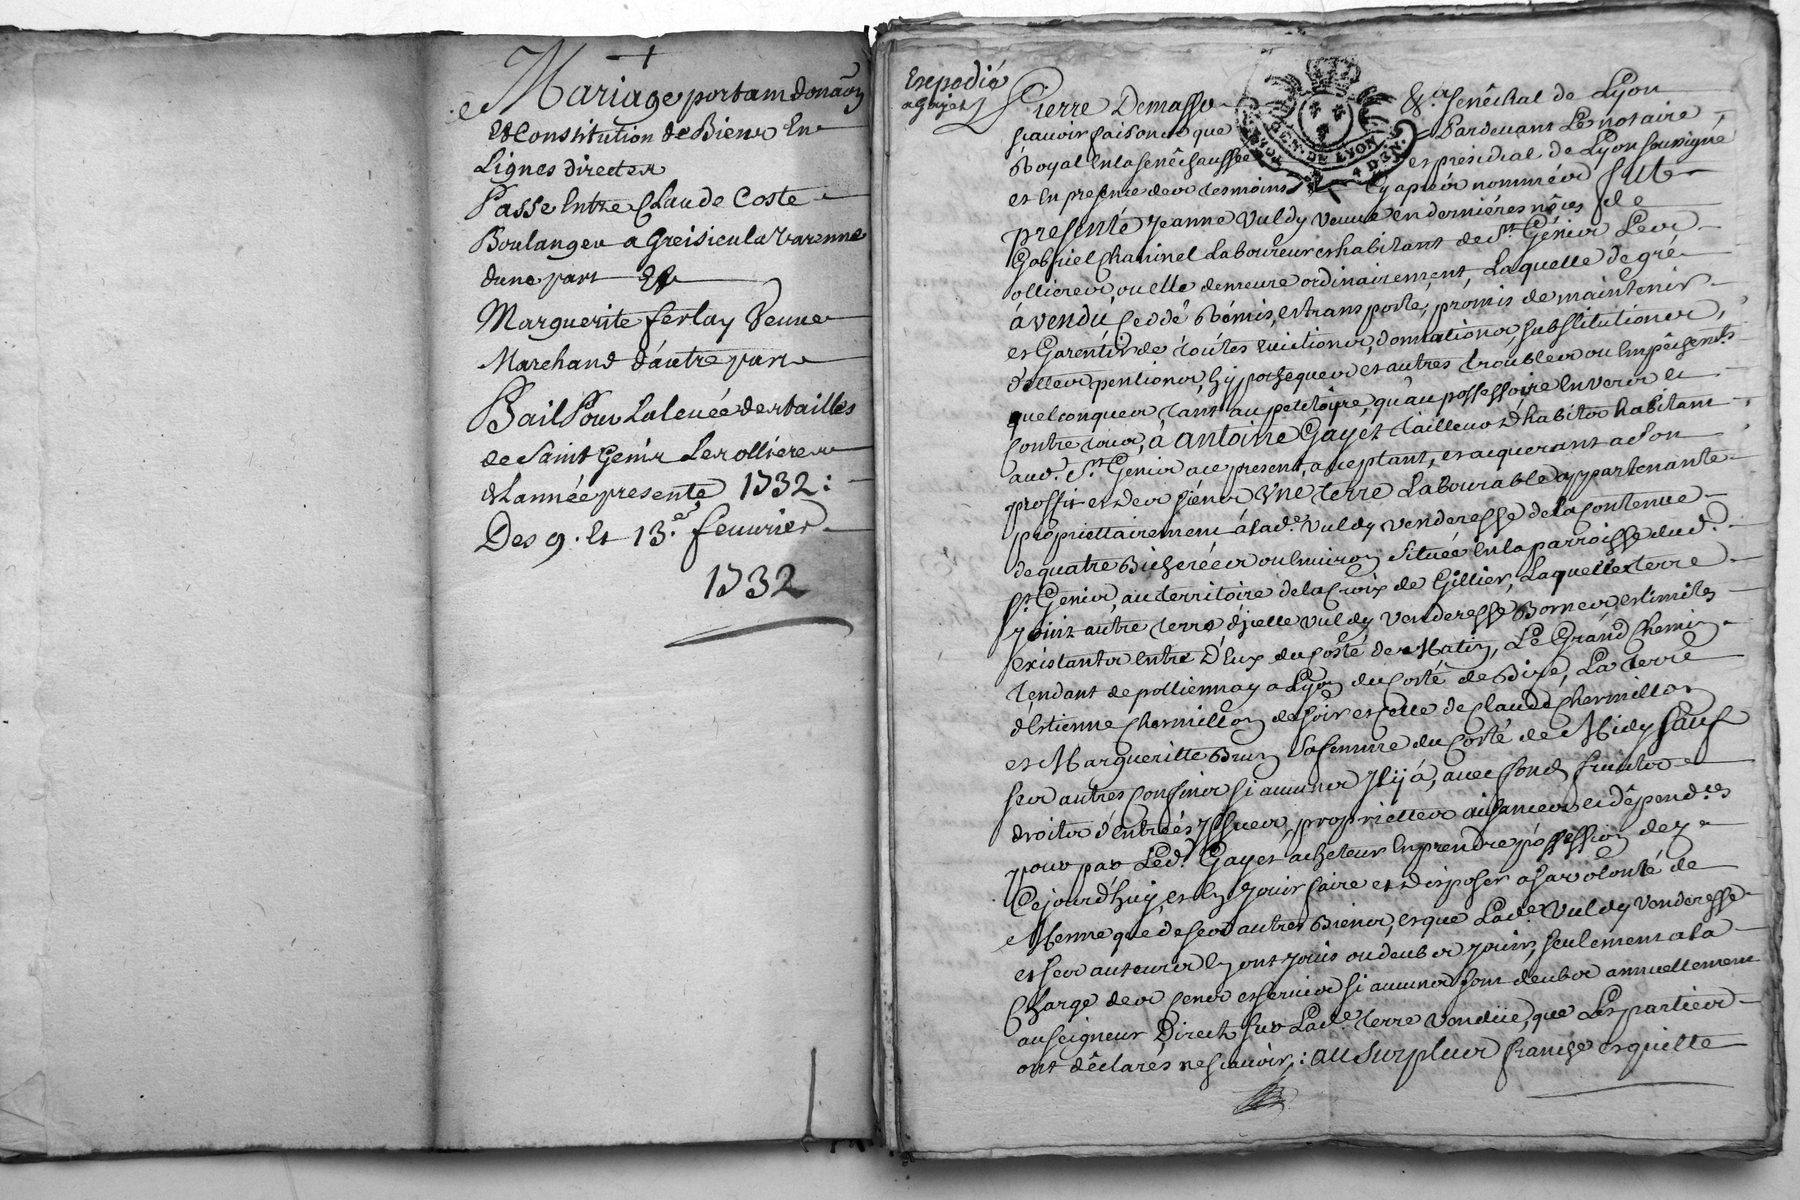 Mariage portant donaõn
Et Constitution de Biens En
Lignes directes
Passe Entre Claude Coste
Boulanger a Greisieu la Varenne
dune part Et
Marguerite ferlay Veuve
Marchand d'autre part
Bail Pour La levée des tailles
de Saint Genis Les ollieres
de L'année presente 1732:
Des 9. et 13.e fevrier
1732
Expedié
a Gayet
Pierre Demasso &.a Senêchal de Lyon
scavoir faisons que Pardevant Le notaire
Royal En la Senêchaussée et presidial de Lyon soussigné
et En presence des tesmoins Cy aprés nommés fut
GEN. DE LYON
DEN.
presenté Jeanne Vuldy veuve en derniéres nôces de
Gabriel Chaninel Laboureur et habitant de St. Génis Les
ollieres, ou elle demeure ordinairement, Laquelle de gré
à vendu, Ceddé Rémis, et transporté, promis de maintenir
et Garentir de toutes Evictions, donnations, substitutions,
dettes, pentions, hÿpotheques et autres troubles ou Empêchents
quelconques tant au petitoire, qu'au possessoire Envers et
Contre tous, à antoine Gayet tailleur d'habits habitant
aud. St. Génis a ce present, acceptant, et acquerant a son
proffit et des siéns Une terre Labourable appartenante
propriettairement à lade. Vuldy venderesse de la Contenue
de quatre Bicherées ou Environ Située En la parroisse dud.
St. Genis, au territoire de la Croix de Gillier, Laquelle terre
joint autre terre d'jcelle Vuldy venderesse Bornes, et limites
Existants Entre D'Eux du Costé de Matin, Le Grand Chemin
tendant de polliennay a Lyon du Costé de Bize, La terre
d'Estienne Chermillon de soir et Celle de Claude Chermillon
et Margueritte Brun sa femme du Costé de Midy sauf
ses autres Confins si aucuns Jl ÿ à, avec fond, fruits
droits d'Entrées ÿssues, propriettés aisances et dêpend.ces
pour par Led. Gayet acheteur En prendre possession dez
Cejourd'huy, et En jouir faire et disposer a sa volonté de
Mesme que de ses autres Biens, et que Lade. Vuldy venderesse
et ses auteurs En ont jouis ou deub es jouir, seulement a la
Charge des Cens et services si aucuns sont deubs annuellement
au seigneur Direct sur Lade. terre vendüe, que Les parties
ont dêclarés ne scavoir,: au surplus franche et quitte